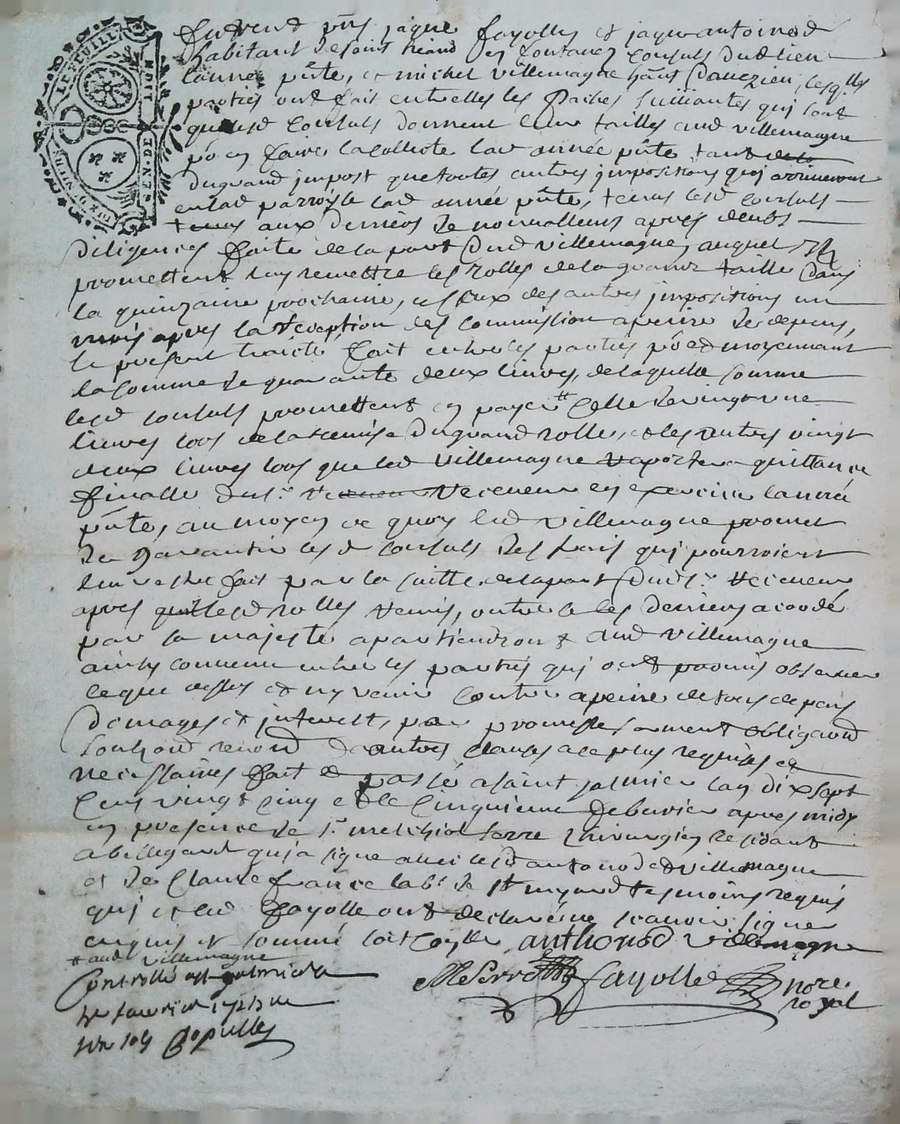 furent pñts jaque fayolle et jaque antoinod
habitant de saint heand en fontanez consuls dud lieu
lannee pñte, et michel villemagne hañt dauezieu, lesqlles
parties ont fait entrelles les pactes suiuantes qui sont
que lesd consuls donnent leur tailles aud villemagne
po en faire la collecte lad année pñte tant
du grand impost que toutes autres impositions qui arriueront
en lad parroisse lad année pñte,
aux deniers de nonualleurs apres deubs
diligences faite de la part dud villemagne, auquel
promettent luy remettre les rolles de la grande taille dans
la quinzaine prochaine, et ceux des autres impositions un
mois apres la reception des commission a peine des depens,
le present traicté fait entre les parties po et moyennant
la somme de quarante deux liures, de laquelle somme
lesd consuls promettent en payer celle de vingt une
liures lors de la remise du grand rolle, et les autres vingt
deux liures lors que led villemagne raportera quittance
finalle du sr receueur en exercice lannée
pñte, au moyen de quoy led villemagne promet
de garantir lesd consuls des frais qui pourroient
leur estre fait par la suitte de la part dud sr receueur
apres lesd rolles remis, outre ce les deniers acordé
par sa majesté apartiendront aud villemagne
ainsy conuenu entre les parties qui ont promis obseruer
ce que dessus et ny venir contre a peine de tous depans
domages et interest, par promesse serment obligaõn
soubmõn renonõn et autres clauses a ce plus requises et
necessaires fait et passé a saint galmier lan dix sept
cens vingt cinq et le cinquieme feburier apres midy
en presence de sr melchior serre chirurgien residant
a bellegarde qui a signe auec lesd antonod et villemagne
et de claude france labr de st tesmoins requis
qui et led fayolle ont declaré ne scauoir signe
enquis et sommé anthonod villemagne
# aud villemagne
Controllé a st galmier le
MSerre fayolle nore
royal